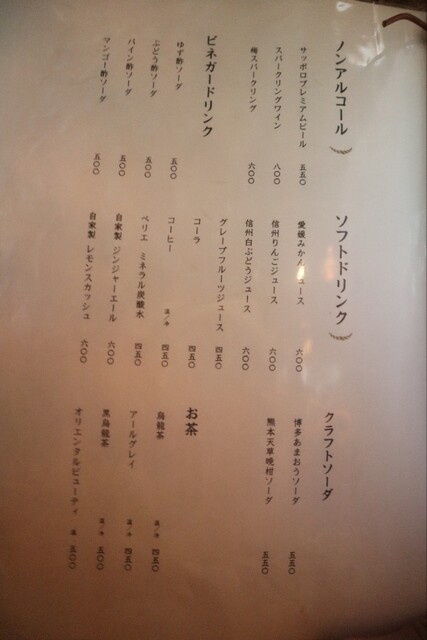 ノンアルコール
サッポロプレミアムビール 五五〇
スパークリングワイン 八〇〇
梅スパークリング 六〇〇
ビネガードリンク
ゆず酢ソーダ 五〇〇
ぶどう酢ソーダ 五〇〇
パイン酢ソーダ 五〇〇
マンゴー酢ソーダ 五〇〇
ソフトドリンク
愛媛みかんジュース 六〇〇
信州りんごジュース 六〇〇
信州白ぶどうジュース 六〇〇
グレープフルーツジュース 四五〇
コーラ 四五〇
コーヒー 温／冷 四五〇
ペリエ ミネラル炭酸水 四五〇
自家製 ジンジャーエール 六〇〇
自家製 レモンスカッシュ 六〇〇
クラフトソーダ
博多あまおうソーダ 五五〇
熊本天草晩柑ソーダ 五五〇
お茶
烏龍茶 温／冷 四五〇
アールグレイ 温／冷 四五〇
黒烏龍茶 温／冷 五〇〇
オリエンタルビューティ 温 五〇〇